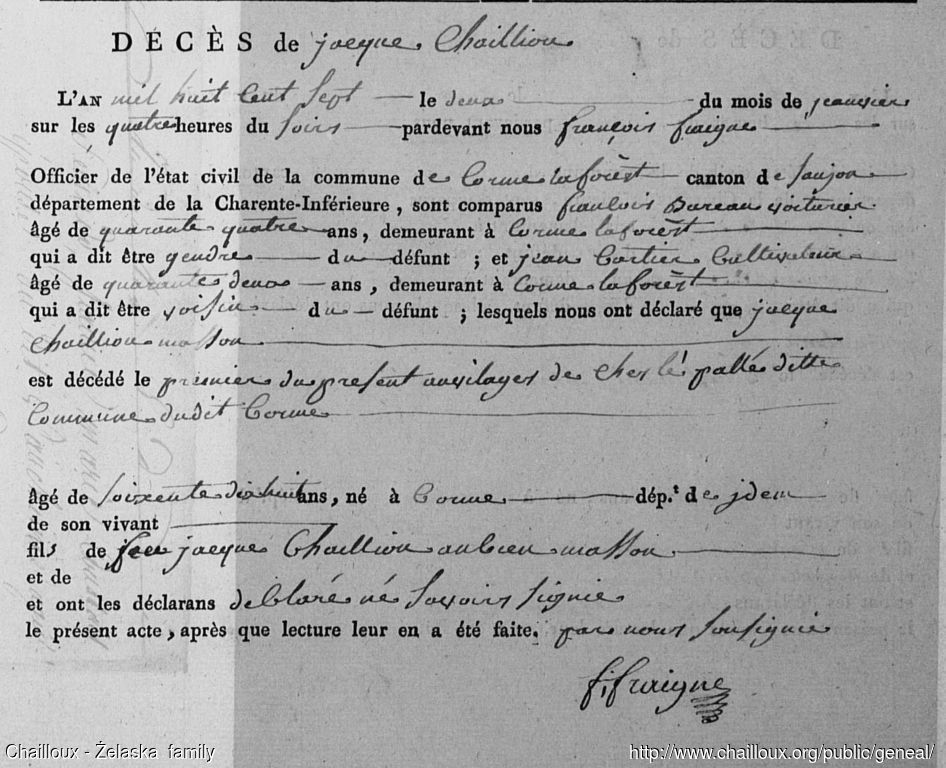 DÉCÈS de jacque Chailliou
L'AN mil huit Cent Sept le deux du mois de jeanvier
sur les quatre heures du Soirs pardevant nous françois fraigne
Officier de l'état civil de la commune de Corme laforêst canton de Saujon
département de la Charente-Inférieure, sont comparus francois Bureau voiturier
âgé de quarante quatre ans, demeurant à Corme laforêst
qui a dit être gendre du défunt ; et jean Cartier Cultivateur
âgé de quarante deux ans, demeurant à Corme laforêst
qui a dit être voisin du défunt ; lesquels nous ont déclaré que jacque
Chailliou masson
est décédé le premier du present auvilages de ches lé pallé ditte
Commune dudit Corme
âgé de Soixente dix huit ans, né à Corme dép.t de jdem
de son vivant
fils de feu jacque Chailliou aubien masson
et de
et ont les déclarans déClaré né Savoirs Signie
le présent acte, après que lecture leur en a été faite. par nous Sousignie
f, fraigne
Chailloux - Żelaska family
http://www.chailloux.org/public/geneal/